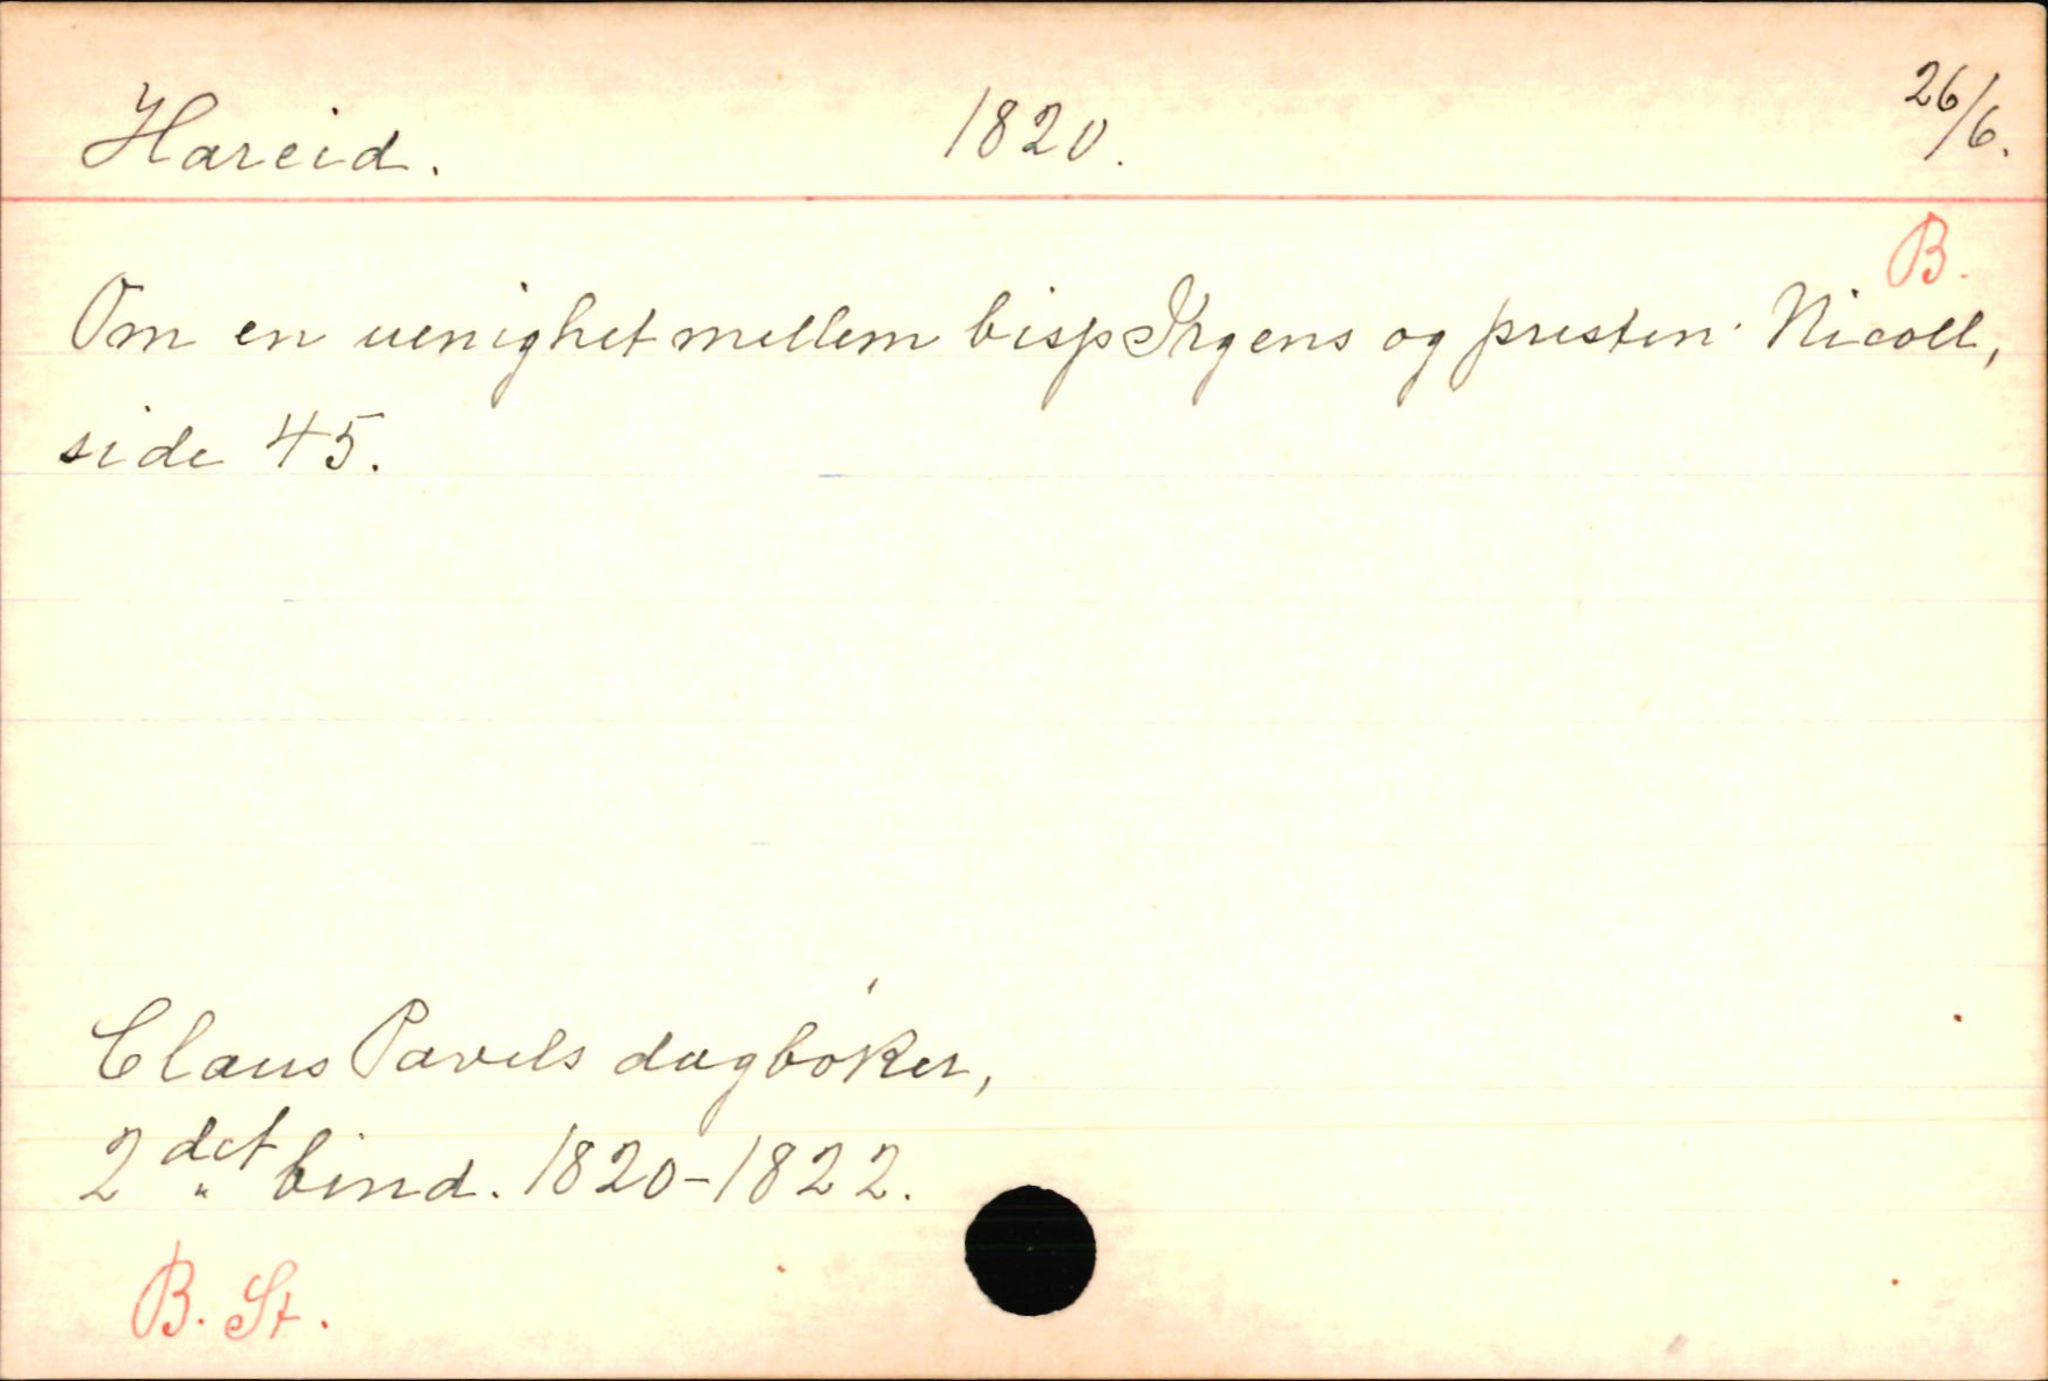 Hareid. 1820. 26/6.
B.
Om en uenighet mellem bisp Irgens og presten Nicoll,
side 45.
Claus Pavels dagbøker,
2det bind. 1820-1822.
B. St.